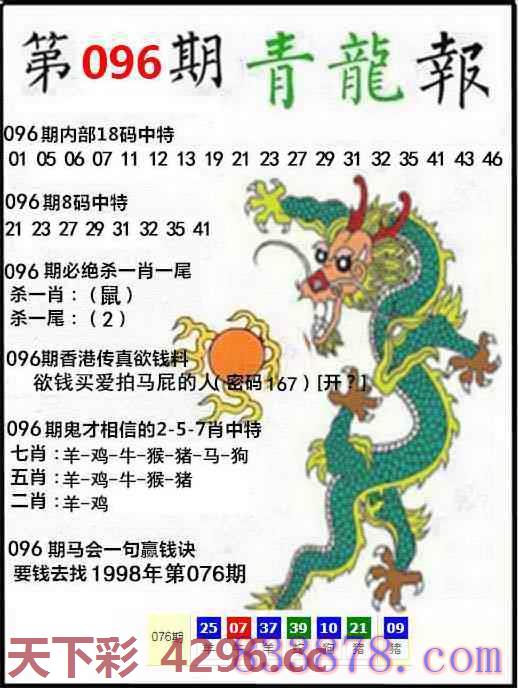 第096期青龍報
096期内部18码中特
01 05 06 07 11 12 13 19 21 23 27 29 31 32 35 41 43 46
096期8码中特
21 23 27 29 31 32 35 41
096期必绝杀一肖一尾
杀一肖:(鼠)
杀一尾:(2)
096期香港传真欲钱料
欲钱买爱拍马屁的人(密码167)[开?]
096期鬼才相信的2-5-7肖中特
七肖:羊-鸡-牛-猴-猪-马-狗
五肖:羊-鸡-牛-猴-猪
二肖:羊-鸡
096期马会一句赢钱诀
要钱去找1998年第076期
076期 25 07 37 39 10 21 09
羊 羊 狗 猪 猪
天下彩 4296.cc
878.com